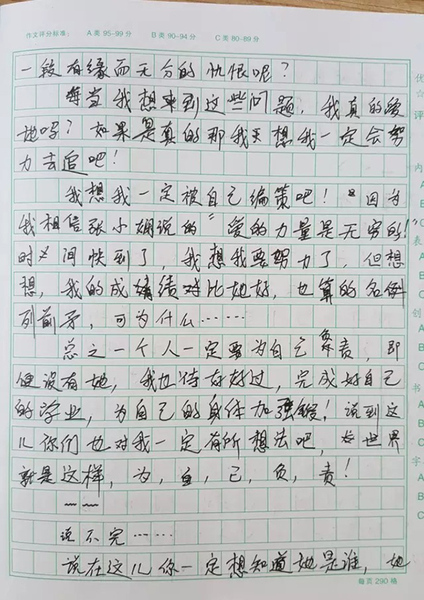 作文评分标准： A类95-99分 B类90-94分 C类80-89分
一段有缘而无分的忧恨呢？
每当我想来到这些问题，我真的爱
她吗？如果是真的那我天想我一定会努
力去追吧！
我想我一定被自己编策吧！因为
我相信张小娴说的“爱的力量是无穷的！”
时间快到了，我想我要努力了，但想
想，我的成绩对比她好，也算的名例
列前矛，可为什么……
总之一个人一定要为自己负责，即
便没有她，我也待好好过，完成好自己
的学业，为自己的身体加强锻！说到这
儿你们也对我一定有所想法吧，世界
就是这样，为，自，己，负，责！
——
说不完……
说在这儿你一定想知道她是谁，她
每页290格
优
☆
评
内
A
B
C
表
A
B
C
创
A
B
C
字
A
B
C